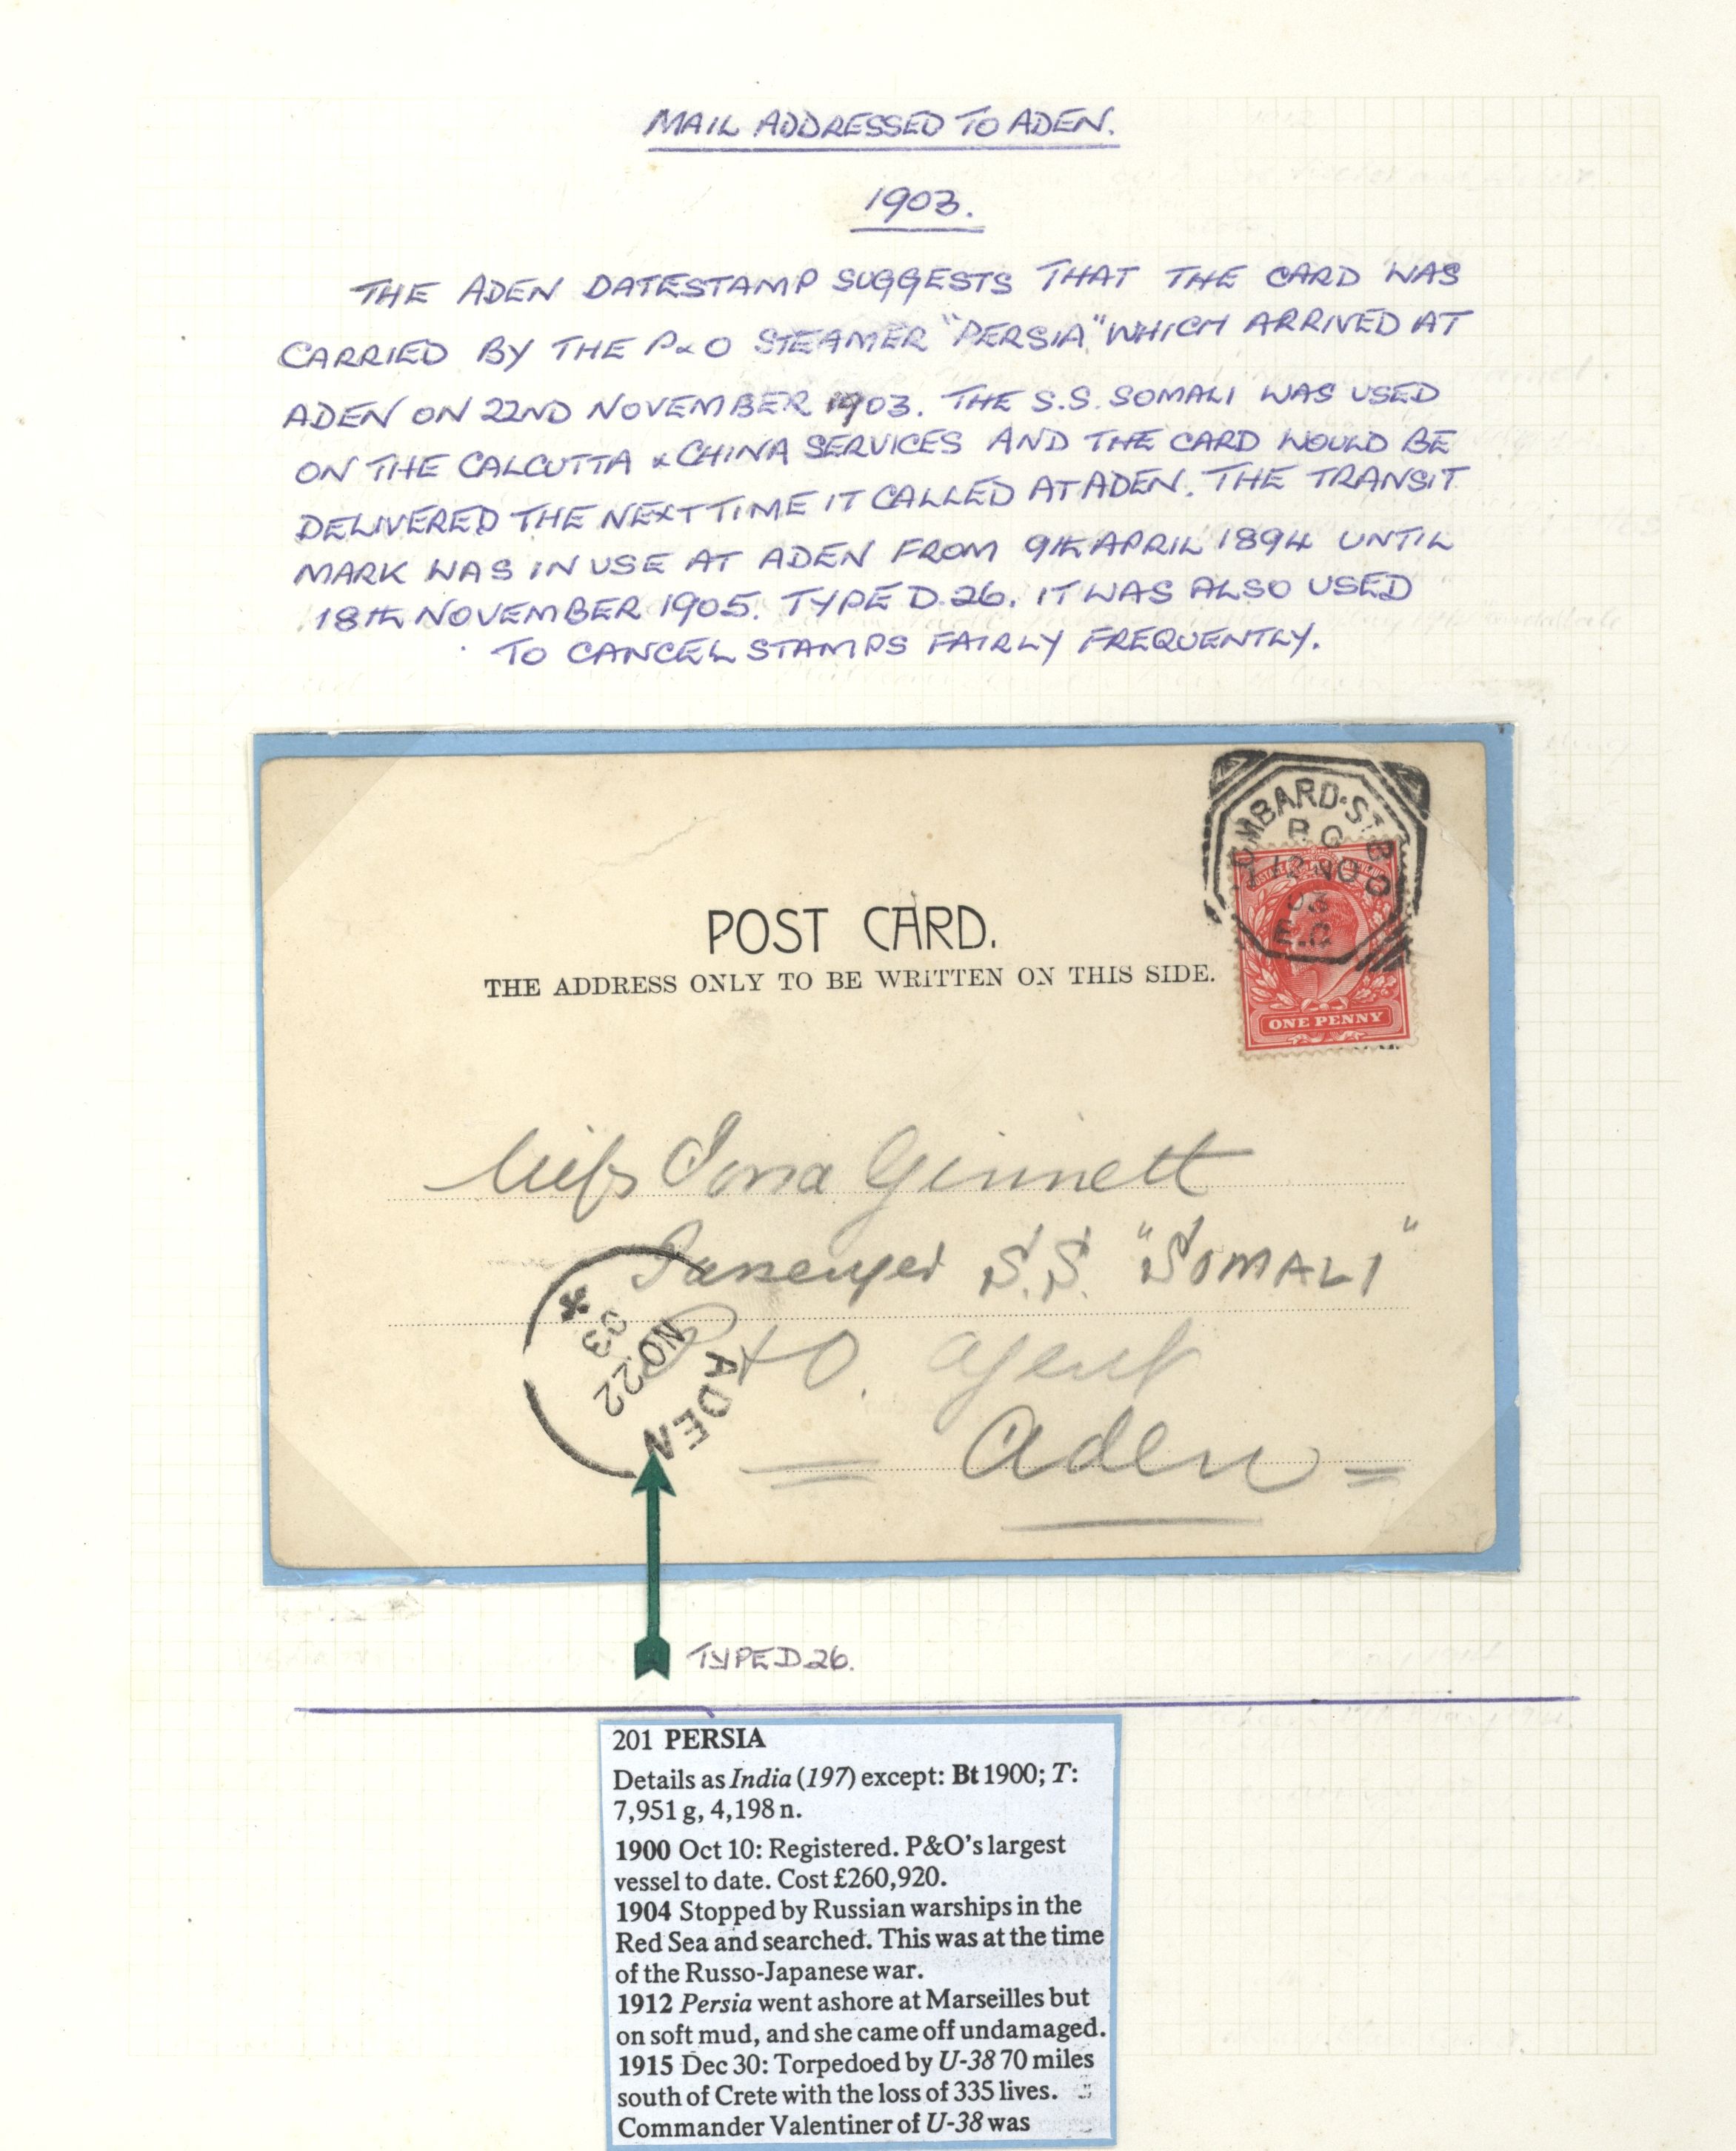 MAIL ADDRESSED TO ADEN.
1903.
THE ADEN DATESTAMP SUGGESTS THAT THE CARD WAS
CARRIED BY THE P&O STEAMER "PERSIA" WHICH ARRIVED AT
ADEN ON 22ND NOVEMBER 1903. THE S.S. SOMALI WAS USED
ON THE CALCUTTA & CHINA SERVICES AND THE CARD WOULD BE
DELIVERED THE NEXT TIME IT CALLED AT ADEN. THE TRANSIT
MARK WAS IN USE AT ADEN FROM 9th APRIL 1894 UNTIL
18th NOVEMBER 1905. TYPE D.26. IT WAS ALSO USED
TO CANCEL STAMPS FAIRLY FREQUENTLY.
LOMBARD·ST. B O
12 NO
03
E.C
ONE PENNY
POST CARD.
THE ADDRESS ONLY TO BE WRITTEN ON THIS SIDE.
Miss Ginnett
Passenger S.S. "SOMALI"
P&O. agent
Aden
ADEN
NO 22
03
TYPE D 26.
201 PERSIA
Details as India (197) except: Bt 1900; T:
7,951 g, 4,198 n.
1900 Oct 10: Registered. P&O's largest
vessel to date. Cost £260,920.
1904 Stopped by Russian warships in the
Red Sea and searched. This was at the time
of the Russo-Japanese war.
1912 Persia went ashore at Marseilles but
on soft mud, and she came off undamaged.
1915 Dec 30: Torpedoed by U-38 70 miles
south of Crete with the loss of 335 lives.
Commander Valentiner of U-38 was